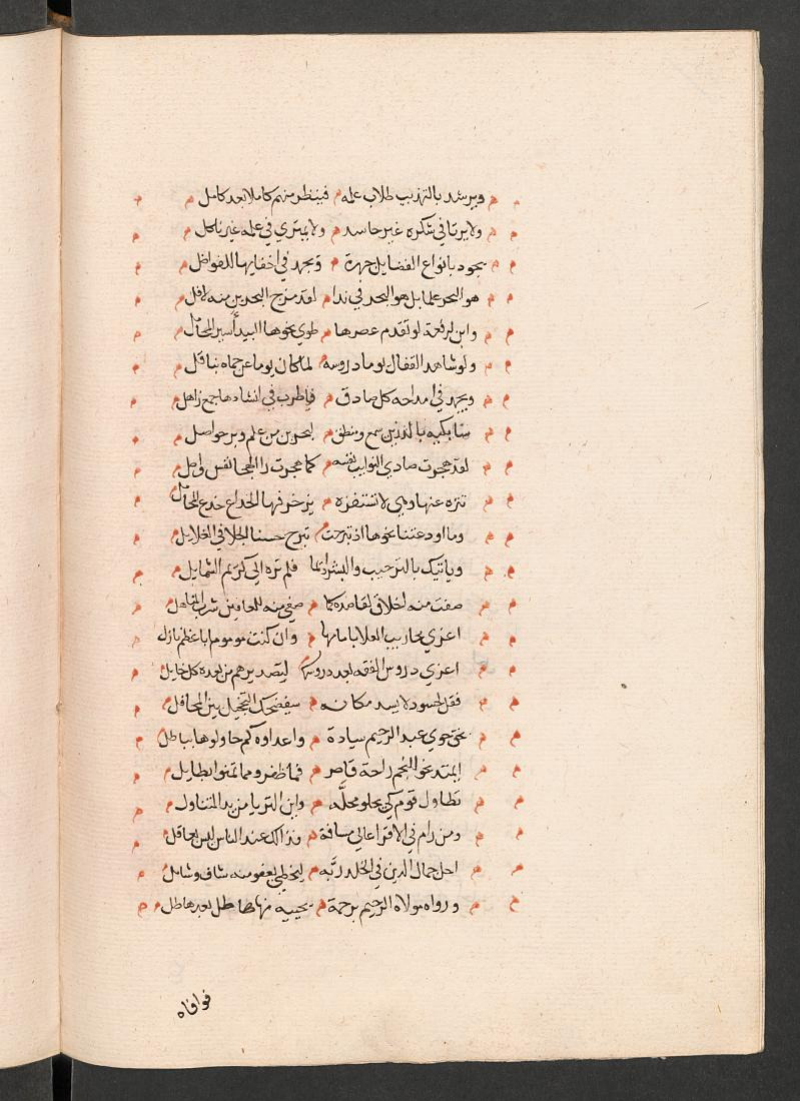 ويرشد بالتهذيب طلاب علمه م فينظر منهم كاملا بعد كامل
ولا يرتا في شكره غير حاسد م ولا يمتري في علمه غير ناكل
يجود بانواع الفضايل جهرة م ويجهد في اخفايها للفواضل
هو البحر علما بل هو البحر في ندا م لقد مزج البحرين منه لاقل
وابن لرفعة لو تقدم عصرها م طوي نحوها البيد أسير المحامل
ولو شاهد القفال يوما دروسه م لما كان يوما عن حماه بناقل
ويجهد في امداحه كل صادق م فاطرب في انشادها جمع زاهل
ستابكيه بالدرين سمع ومنطق م لبحرين من علم وبر حواصل
لقد هجرت صادي النوايب نفسه م كما هجرت را الهجا نفس واصل
تنزه عنها وهي لا تستفزه م يزخرفها الخداع خدع المخاتل
وما اودعتنا نحوها اذ تبرجت م تبرج حسنا الحلا في الغلايل
وياتيك بالترحيب والبشر دايما فلم تره الي كريم الشمايل
صفت منه اخلاق لقاصده كما م صفي منه للعافين شرب المناهل
اعزي محاريب العلا بامامها م وان كنت موموما باعظم نازل
اعزي دروس الفقه بعد دروسه ليتصديرهم من بعده كل خامل
فقل لحسود لا يسد مكانه م سيفضحك التخجيل بين المحافل
نحي حوي عبد الرحيم سيادة م واعداوه كم حاولوها بباطل
ايمتد نحو النجم راحة قاصر م فما ظفروا مما تمنوا بطايل
تطاول قوم كي يحلو محله م واين الثريا من يد المتناول
ومن رام في الاقرا عالي مسافة م فذالك عند الناس ليس بعاقل
احل جمال الدين في الخلد ربه م ليحظي بعفو منه شاف وشامل
ورواه مولاه الرحيم برحمة م يحييه منها هاطل بعد هاطل
فوافاه